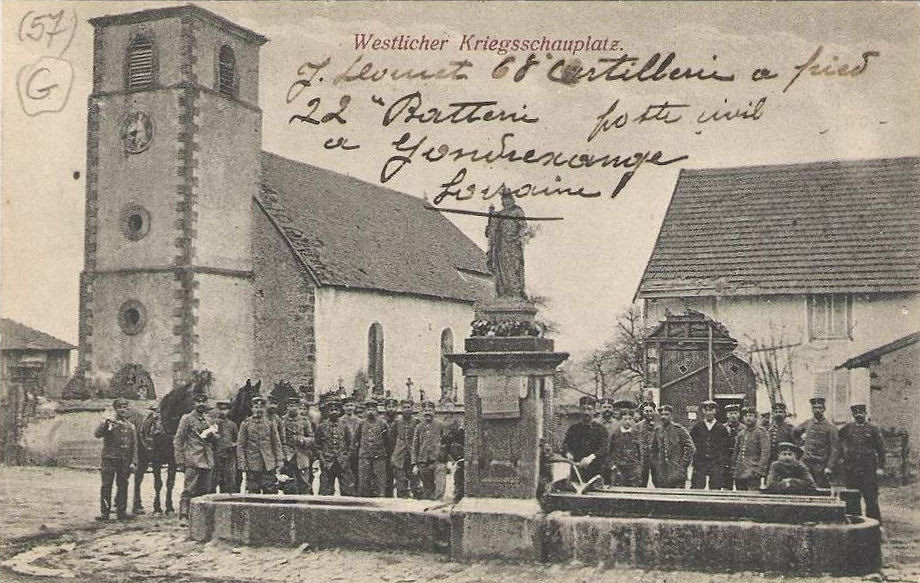 (57)
G
Westlicher Kriegsschauplatz.
J. Llomet 68e Artillerie a pied
22" Batterie poste civil
a Gondrexange
Lorraine